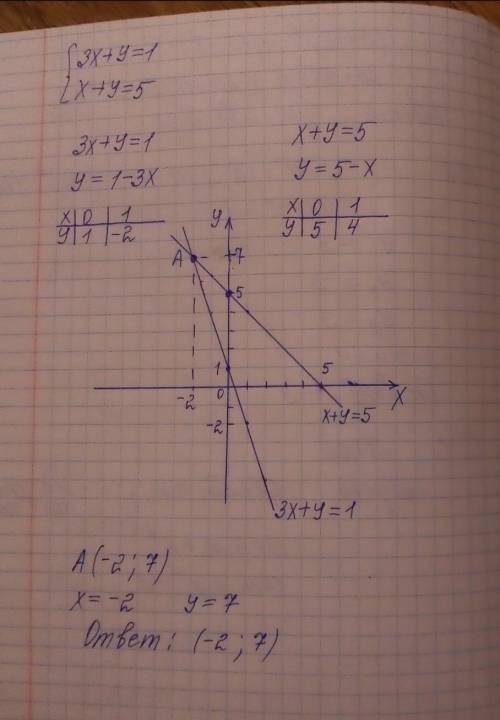 {3x+y=1
x+y=5
3x+y=1
y=1-3x
x 0 1
y 1 -2
x+y=5
y=5-x
x 0 1
y 5 4
y
A 7
5
1 5
-2 0 X
-2 x+y=5
3x+y=1
A(-2;7)
x=-2 y=7
Ответ: (-2;7)